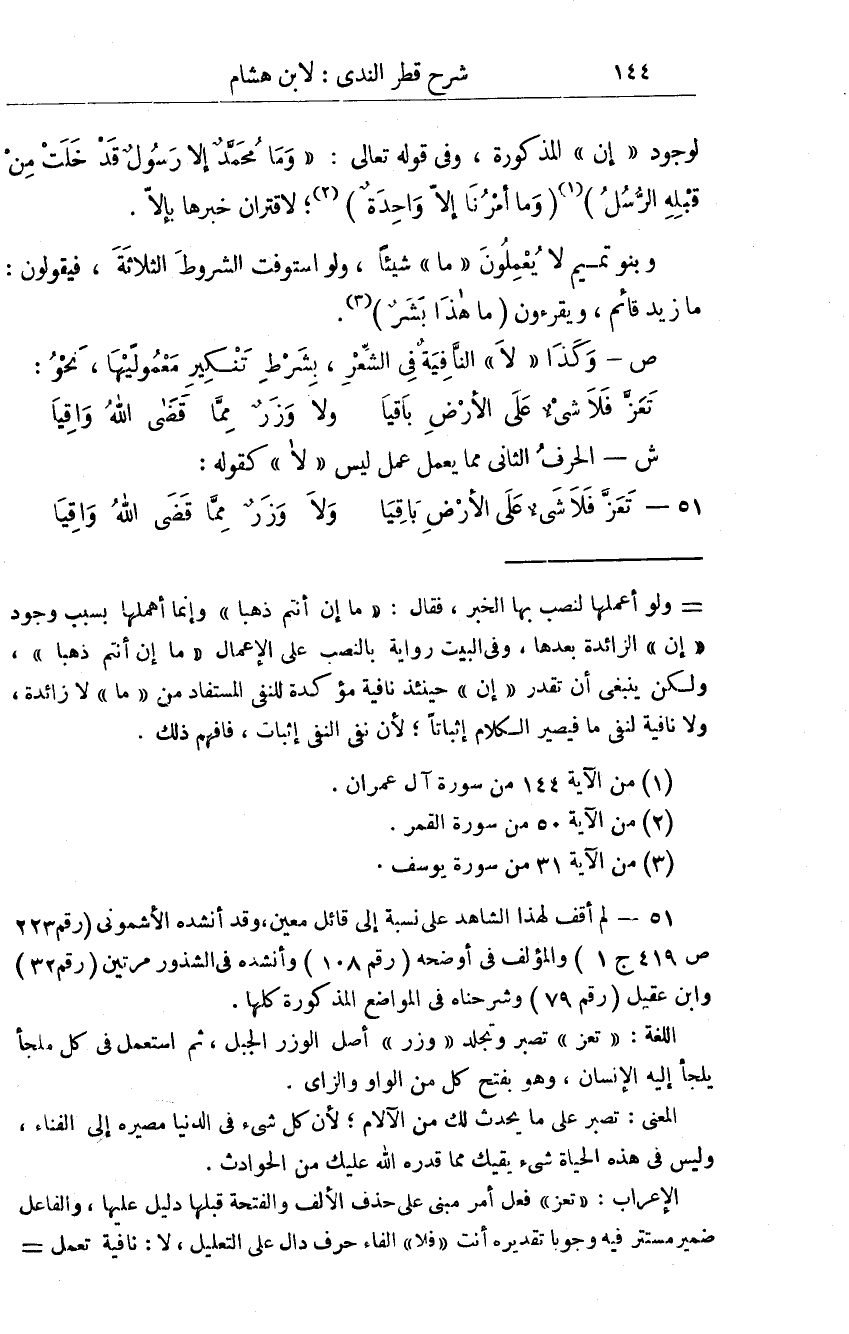 ١٤٤ شرح قطر الندى : لابن هشام
لوجود « إن » المذكورة ، وفى قوله تعالى : « وَمَا مُحَمَّدٌ إلا رَسُولٌ قَدْ خَلَتْ مِنْ
قَبْلِهِ الرُّسُلُ )(١) ( وَما أمْرُنَا إلاّ وَاحِدَةٌ )(٢) ؛ لاقتران خبرها بإلاّ .
وبنو تمـيم لا يُعْمِلُونَ « ما » شيئاً ، ولو استوفت الشروطَ الثلاثَةَ ، فيقولون :
ما زيد قائم ، ويقرءون ( ما هٰذَا بَشَرٌ )(٣) .
ص – وَكَذَا « لاَ » النَّافِيَةُ فِى الشِّعْرِ ، بِشَرْطِ تَنْـكِيرِ مَعْمُولَيْهَا ، نَحْوُ :
تَعَزَّ فَلاَ شىْءٌ عَلَى الأَرْضِ بَاقيَا ولا وَزَرٌ مِمَّا قَضَى اللهُ وَاقِيَا
ش – الحرفُ الثانى مما يعمل عمل ليس « لاَ » كقوله :
٥١ – تَعَزَّ فَلاَ شَىْءٌ عَلَى الأَرْضِ بَاقِيَا وَلاَ وَزَرٌ مِمَّا قَضَى اللهُ وَاقِيَا
= ولو أعملها لنصب بها الخبر ، فقال : « ما إن أنتم ذهبا » وإنما أهملها بسبب وجود
« إن » الزائدة بعدها ، وفى البيت رواية بالنصب على الإعمال « ما إن أنتم ذهبا » ،
ولـكن ينبغى أن تقدر « إن » حينئذ نافية مؤكدة للنفى المستفاد من « ما » لا زائدة ،
ولا نافية لنفى ما فيصير الـكلام إثباتاً ؛ لأن نفى النفى إثبات ، فافهم ذلك .
(١) من الآية ١٤٤ من سورة آل عمران .
(٢) من الآية ٥٠ من سورة القمر .
(٣) من الآية ٣١ من سورة يوسف .
٥١ – لم أقف لهذا الشاهد على نسبة إلى قائل معين، وقد أنشده الأشمونى (رقم ٢٢٣
ص ٤١٩ ج ١ ) والمؤلف فى أوضحه ( رقم ١٠٨ ) وأنشده فى الشذور مرتين ( رقم ٣٢)
وابن عقيل ( رقم ٧٩ ) وشرحناه فى المواضع المذكورة كلها .
اللغة : « تعز » تصبر وتجلد « وزر » أصل الوزر الجبل ، ثم استعمل فى كل ملجأ
يلجأ إليه الإنسان ، وهو بفتح كل من الواو والزاى .
المعنى : تصبر على ما يحدث لك من الآلام ؛ لأن كل شىء فى الدنيا مصيره إلى الفناء ،
وليس فى هذه الحياة شىء يقيك مما قدره الله عليك من الحوادث .
الإعراب : «تعز» فعل أمر مبنى على حذف الألف والفتحة قبلها دليل عليها ، والفاعل
ضمير مستتر فيه وجوبا تقديره أنت «فلا» الفاء حرف دال على التعليل ، لا : نافية تعمل =